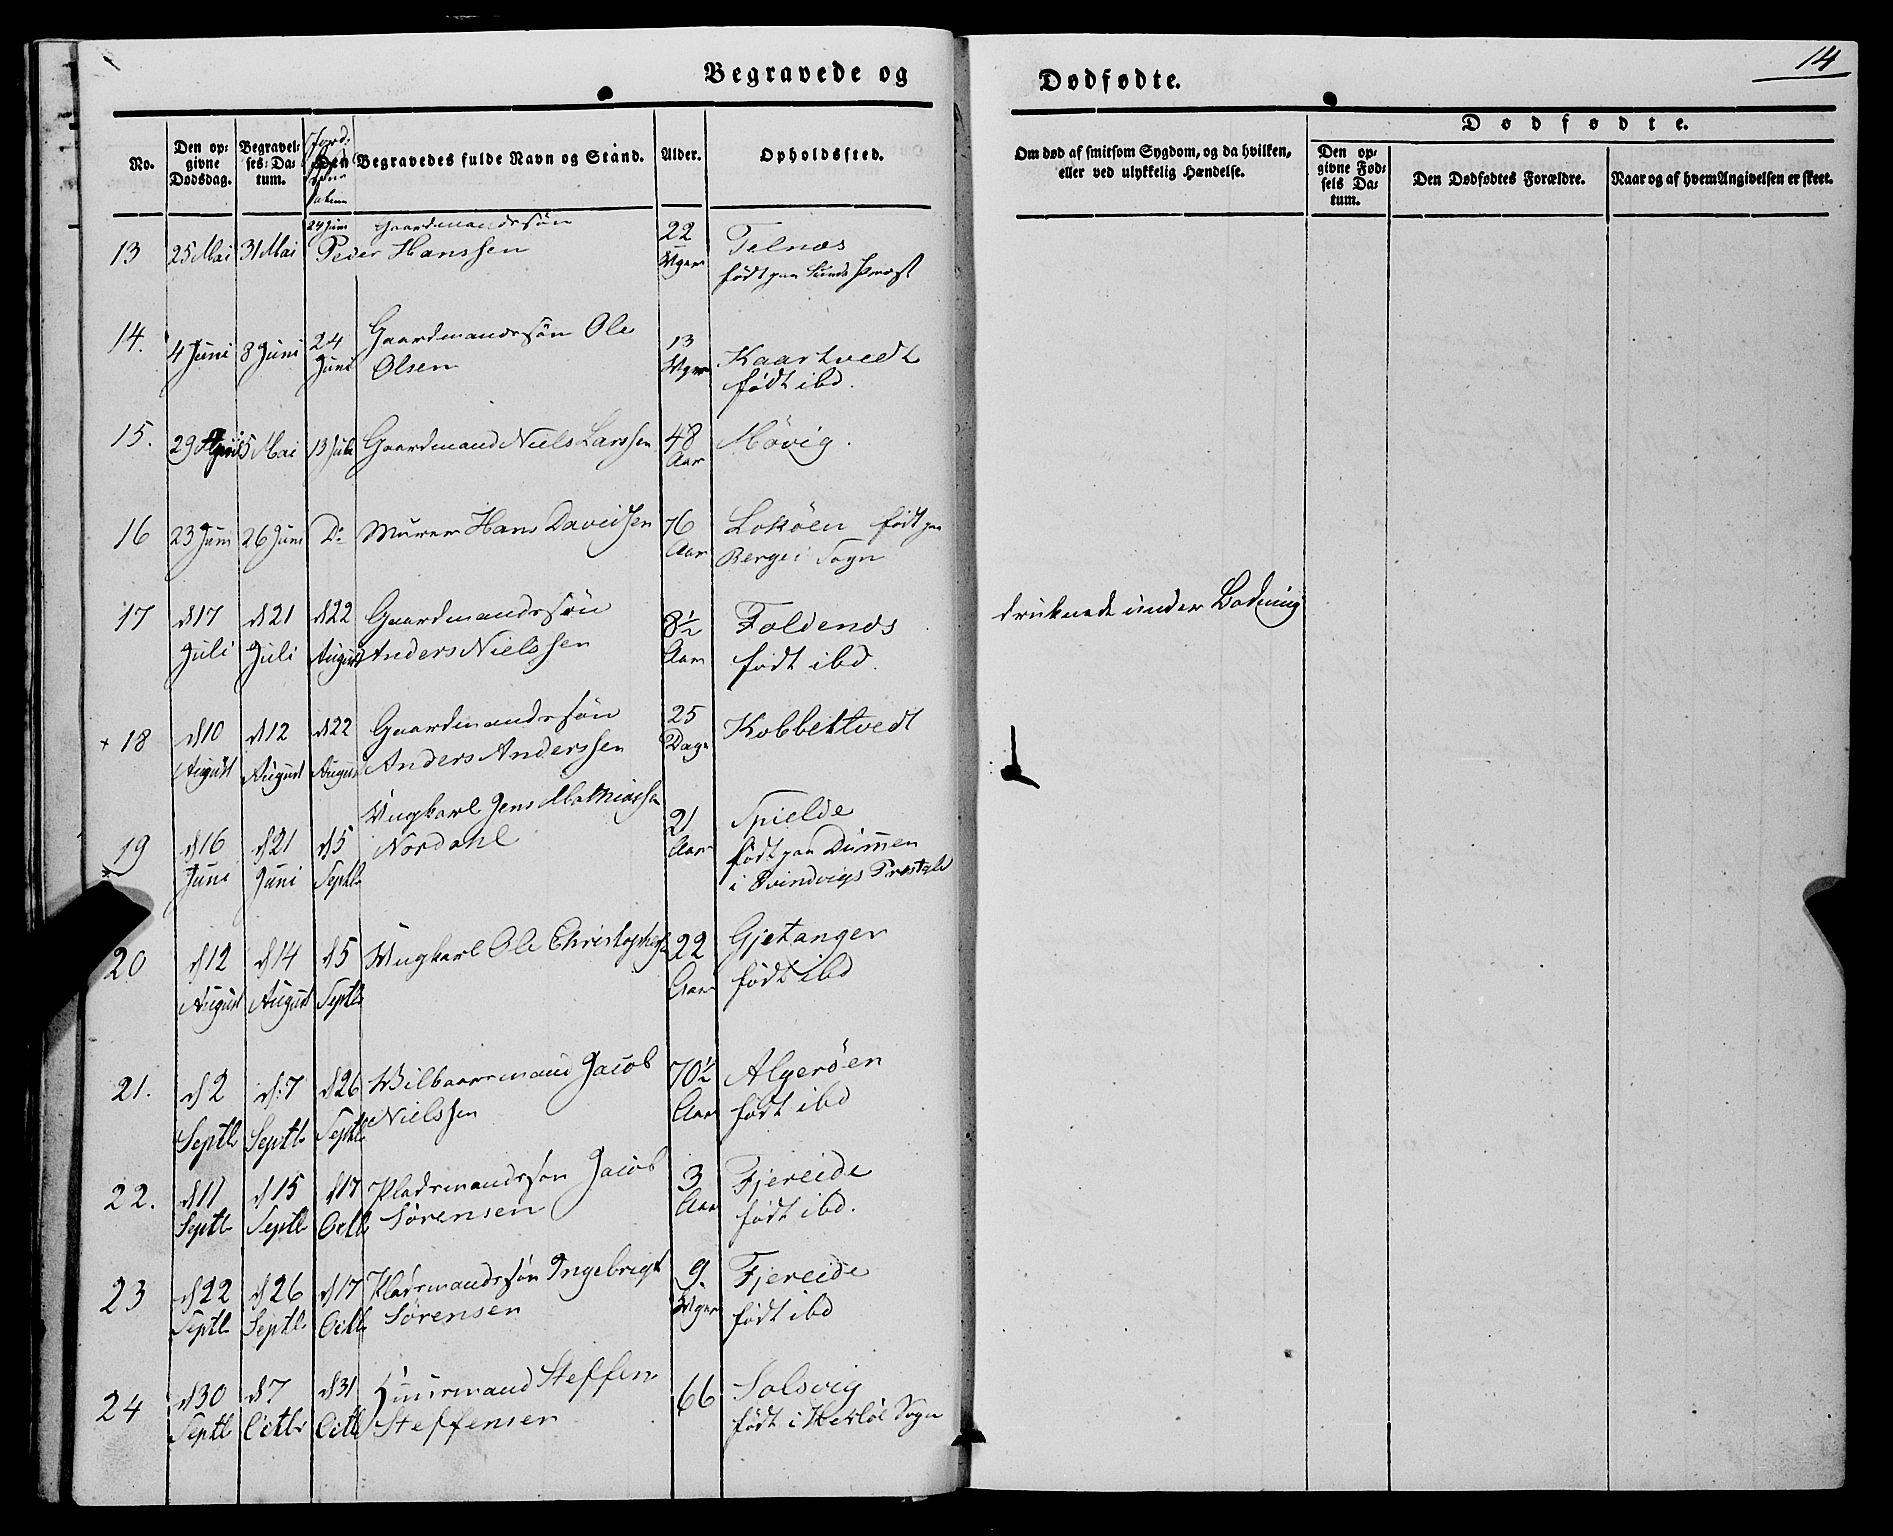 14
Begravede og Dødfødte.
No.
Den op-
givne
Dødsdag.
Begravel-
ses-Da-
tum.
Jord-
Den Begravedes fulde Navn og Stand.
Alder.
Opholdssted.
Om død af smitsom Sygdom, og da hvilken,
eller ved ulykkelig Hændelse.
Dødfødte.
Den op-
givne Fød-
sels Da-
tum.
Den Dødfødtes Forældre.
Naar og af hvem Angivelsen er skeet.
13 25 Mai 31 Mai 24 Juni Gaardmandssøn
Peder Hanssen 22 Uger Telnæs
født paa
14. 4 Juni 8 Juni 24 Juni Gaardmandssøn Ole
Olsen 13 Uger Kaartvedt
født ibd.
15. 29 April 5 Mai 13 Juli Gaardmand Niels Larssen 48 Aar Møvig.
16 23 Juni 26 Juni Do Murer Hans Davidsen 76 Aar Loköen født paa
Berge i Sogn
17 d 17 Juli d 21 Juli d 22 August Gaardmandssøn
Anders Nielssen 8½ Aar Foldenæs
født ibd. druknede under Badning
+ 18 d 10 August d 12 August d 22 August Gaardmandssøn
Anders Anderssen 25 Dage Kobbeltvedt
19 d 16 Juni d 21 Juni d 5 Septbr Ungkarl Jens Mathiassen
Nordahl 21 Aar Spielde
født paa Dummen
i Evindvigs Præstgld
20 d 12 August d 14 August d 5 Septbr Ungkarl Ole Christophers 22 Aar Gjetanger
født ibd
21. d 2 Septbr d: 7 Septbr d 26 Septbr Vilkaarsmand Jacob
Nielssen 70½ Aar Algerøen
født ibd
22. d 11 Septbr d 15 Septbr d 17 Octbr Pladsmandssøn Jacob
Sørensen 3 Aar Fjereide
født ibd.
23 d 22 Septbr d 26 Septbr d 17 Octbr Pladsmandssøn Ingebrigt
Sørensen 9. Uger Fjereide
født ibd
24 d 30 Septbr d 7 Octbr d 31 Octbr Huusmand Steffen
Steffensen 66 Solsvig
født i Herløe Sogn